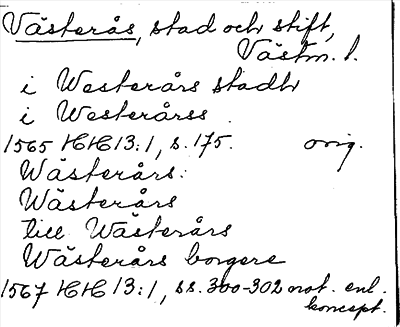 Västerås, stad och stift,
Västm. l.
i Westerårs stadh
i Westerårss.
1565 HH 13:1, s. 175. orig.
Wästerårs.
Wästerårs
till Wästerårs
Wästerårs borgere
1567 HH 13:1, ss. 300-302 not. enl.
koncept.